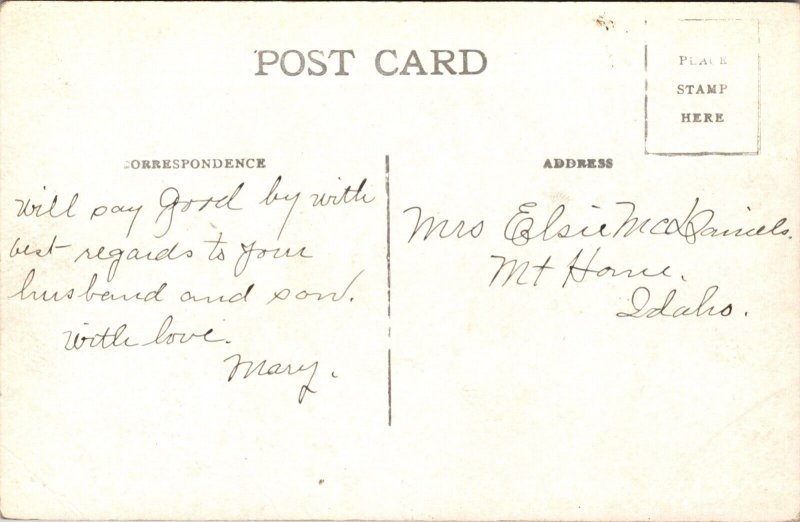 POST CARD
PLACE
STAMP
HERE
CORRESPONDENCE
ADDRESS
Will say good by with
best regards to your
husband and son.
With love.
Mary.
Mrs Elsie McDaniels.
Mt Home.
Idaho.